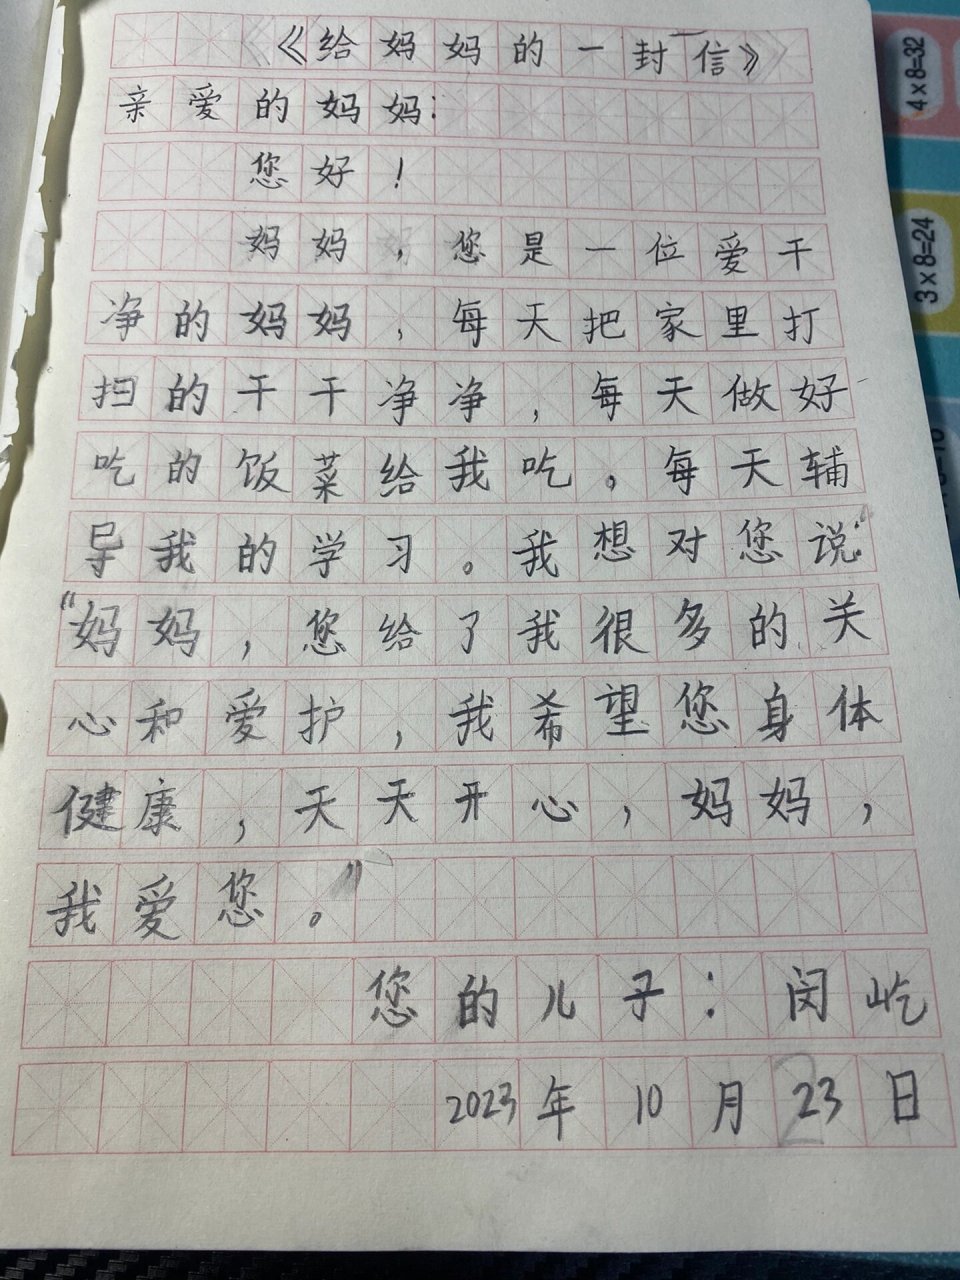 《给妈妈的一封信》
亲爱的妈妈：
您好！
妈妈，您是一位爱干
净的妈妈，每天把家里打
扫的干干净净，每天做好
吃的饭菜给我吃。每天辅
导我的学习。我想对您说：“
“妈妈，您给了我很多的关
心和爱护，我希望您身体
健康，天天开心，妈妈，
我爱您。”
您的儿子：闵屹
2023年10月23日
4×8=32
3×8=24